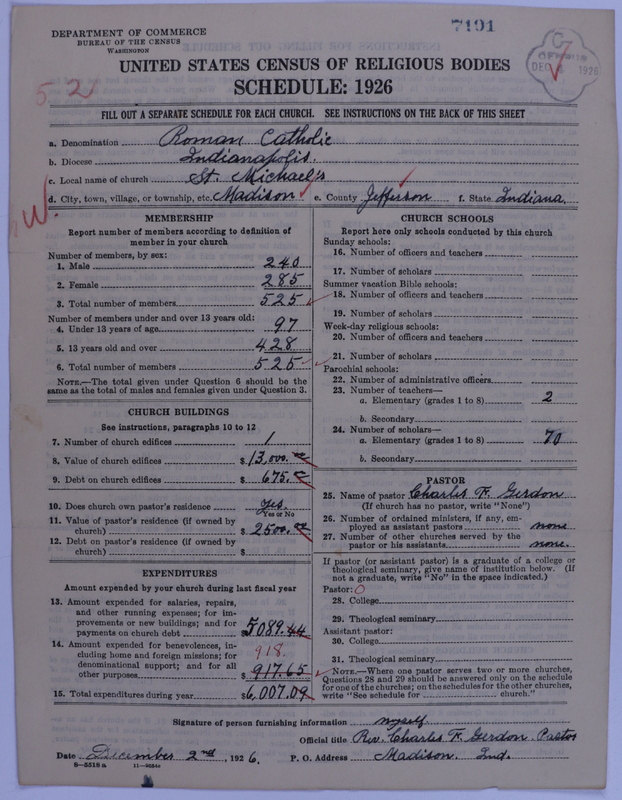 DEPARTMENT OF COMMERCE
BUREAU OF THE CENSUS
WASHINGTON
7191
UNITED STATES CENSUS OF RELIGIOUS BODIES
SCHEDULE: 1926
52
FILL OUT A SEPARATE SCHEDULE FOR EACH CHURCH. SEE INSTRUCTIONS ON THE BACK OF THIS SHEET
a. Denomination Roman Catholic
b. Diocese Indianapolis.
c. Local name of church St. Michael's
d. City, town, village, or township, etc. Madison e. County Jefferson f. State Indiana.
W
MEMBERSHIP
Report number of members according to definition of
member in your church
Number of members, by sex:
1. Male 240
2. Female 285
3. Total number of members 525
Number of members under and over 13 years old:
4. Under 13 years of age 97
5. 13 years old and over 428
6. Total number of members 525
NOTE.—The total given under Question 6 should be the
same as the total of males and females given under Question 3.
CHURCH BUILDINGS
See instructions, paragraphs 10 to 12
7. Number of church edifices 1
8. Value of church edifices $13,000.00
9. Debt on church edifices $675.00
10. Does church own pastor's residence yes.
Yes or No
11. Value of pastor's residence (if owned by
church) $2500.00
12. Debt on pastor's residence (if owned by
church) $
EXPENDITURES
Amount expended by your church during last fiscal year
13. Amount expended for salaries, repairs,
and other running expenses; for im-
provements or new buildings; and for
payments on church debt 5089.44
14. Amount expended for benevolences, in-
cluding home and foreign missions; for
denominational support; and for all
other purposes $917.65
918
15. Total expenditures during year $6,007.09
CHURCH SCHOOLS
Report here only schools conducted by this church
Sunday schools:
16. Number of officers and teachers
17. Number of scholars
Summer vacation Bible schools:
18. Number of officers and teachers
19. Number of scholars
Week-day religious schools:
20. Number of officers and teachers
21. Number of scholars
Parochial schools:
22. Number of administrative officers
23. Number of teachers—
a. Elementary (grades 1 to 8) 2
b. Secondary
24. Number of scholars—
a. Elementary (grades 1 to 8) 70
b. Secondary
PASTOR
25. Name of pastor Charles F. Gerdon
(If church has no pastor, write "None")
26. Number of ordained ministers, if any, em-
ployed as assistant pastors none
27. Number of other churches served by the
pastor or his assistants none.
If pastor (or assistant pastor) is a graduate of a college or
theological seminary, give name of institution below. (If
not a graduate, write "No" in the space indicated.)
Pastor: O
28. College
29. Theological seminary
Assistant pastor:
30. College
31. Theological seminary
NOTE.—Where one pastor serves two or more churches,
Questions 28 and 29 should be answered only on the schedule
for one of the churches; on the schedules for the other churches,
write "See schedule for church."
Signature of person furnishing information myself
Official title Rev. Charles F. Gerdon. Pastor
Date December 2nd, 1926. P. O. Address Madison. Ind.
8—5518 a